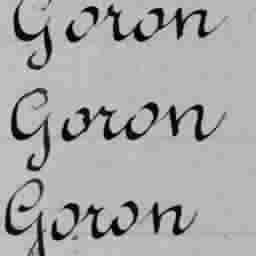 Goron
Goron
Goron